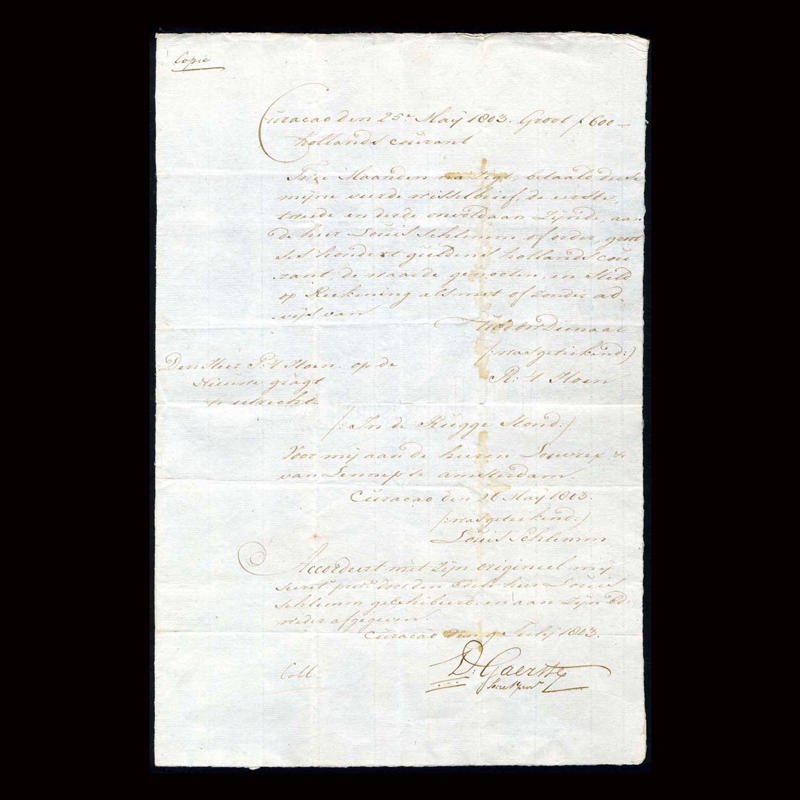 Copie
Curacao den 25e. Maij 1803. Groot ƒ 600 —
hollands courant
Drie Maanden na Zigt, betaald deese
mijne vierde wisselbrief, de eerste
tweede en derde onvoldaan zijnde, aan
de heer Louis Schlemm of order, groot
ses hondert guldens hollands cou
rant, de waarde genooten, en steld
op Reekening als met of zonder ad
vijs van
UEd DW Dienaar
(:was geteekend:)
P: 't Hoen
Den Heer P: 't Hoen op de
Nieuwe gragt
te utrecht
(: In de Rugge Stond:)
Voor mij aan de heeren Louvrex &
van Lennep te amsterdam.
Curacao den 26 Maij 1803.
(:was geteekend:)
Louis Schlemm
Accordeert met Zijn origineel mij
Secrets. door den Edele heer Louis
Schlemm geexhibeerd, en aan Zijn Ed
weder afgegeven
Curacao den 9 Julij 1803.
Coll.
D: Gaerste
Secrets